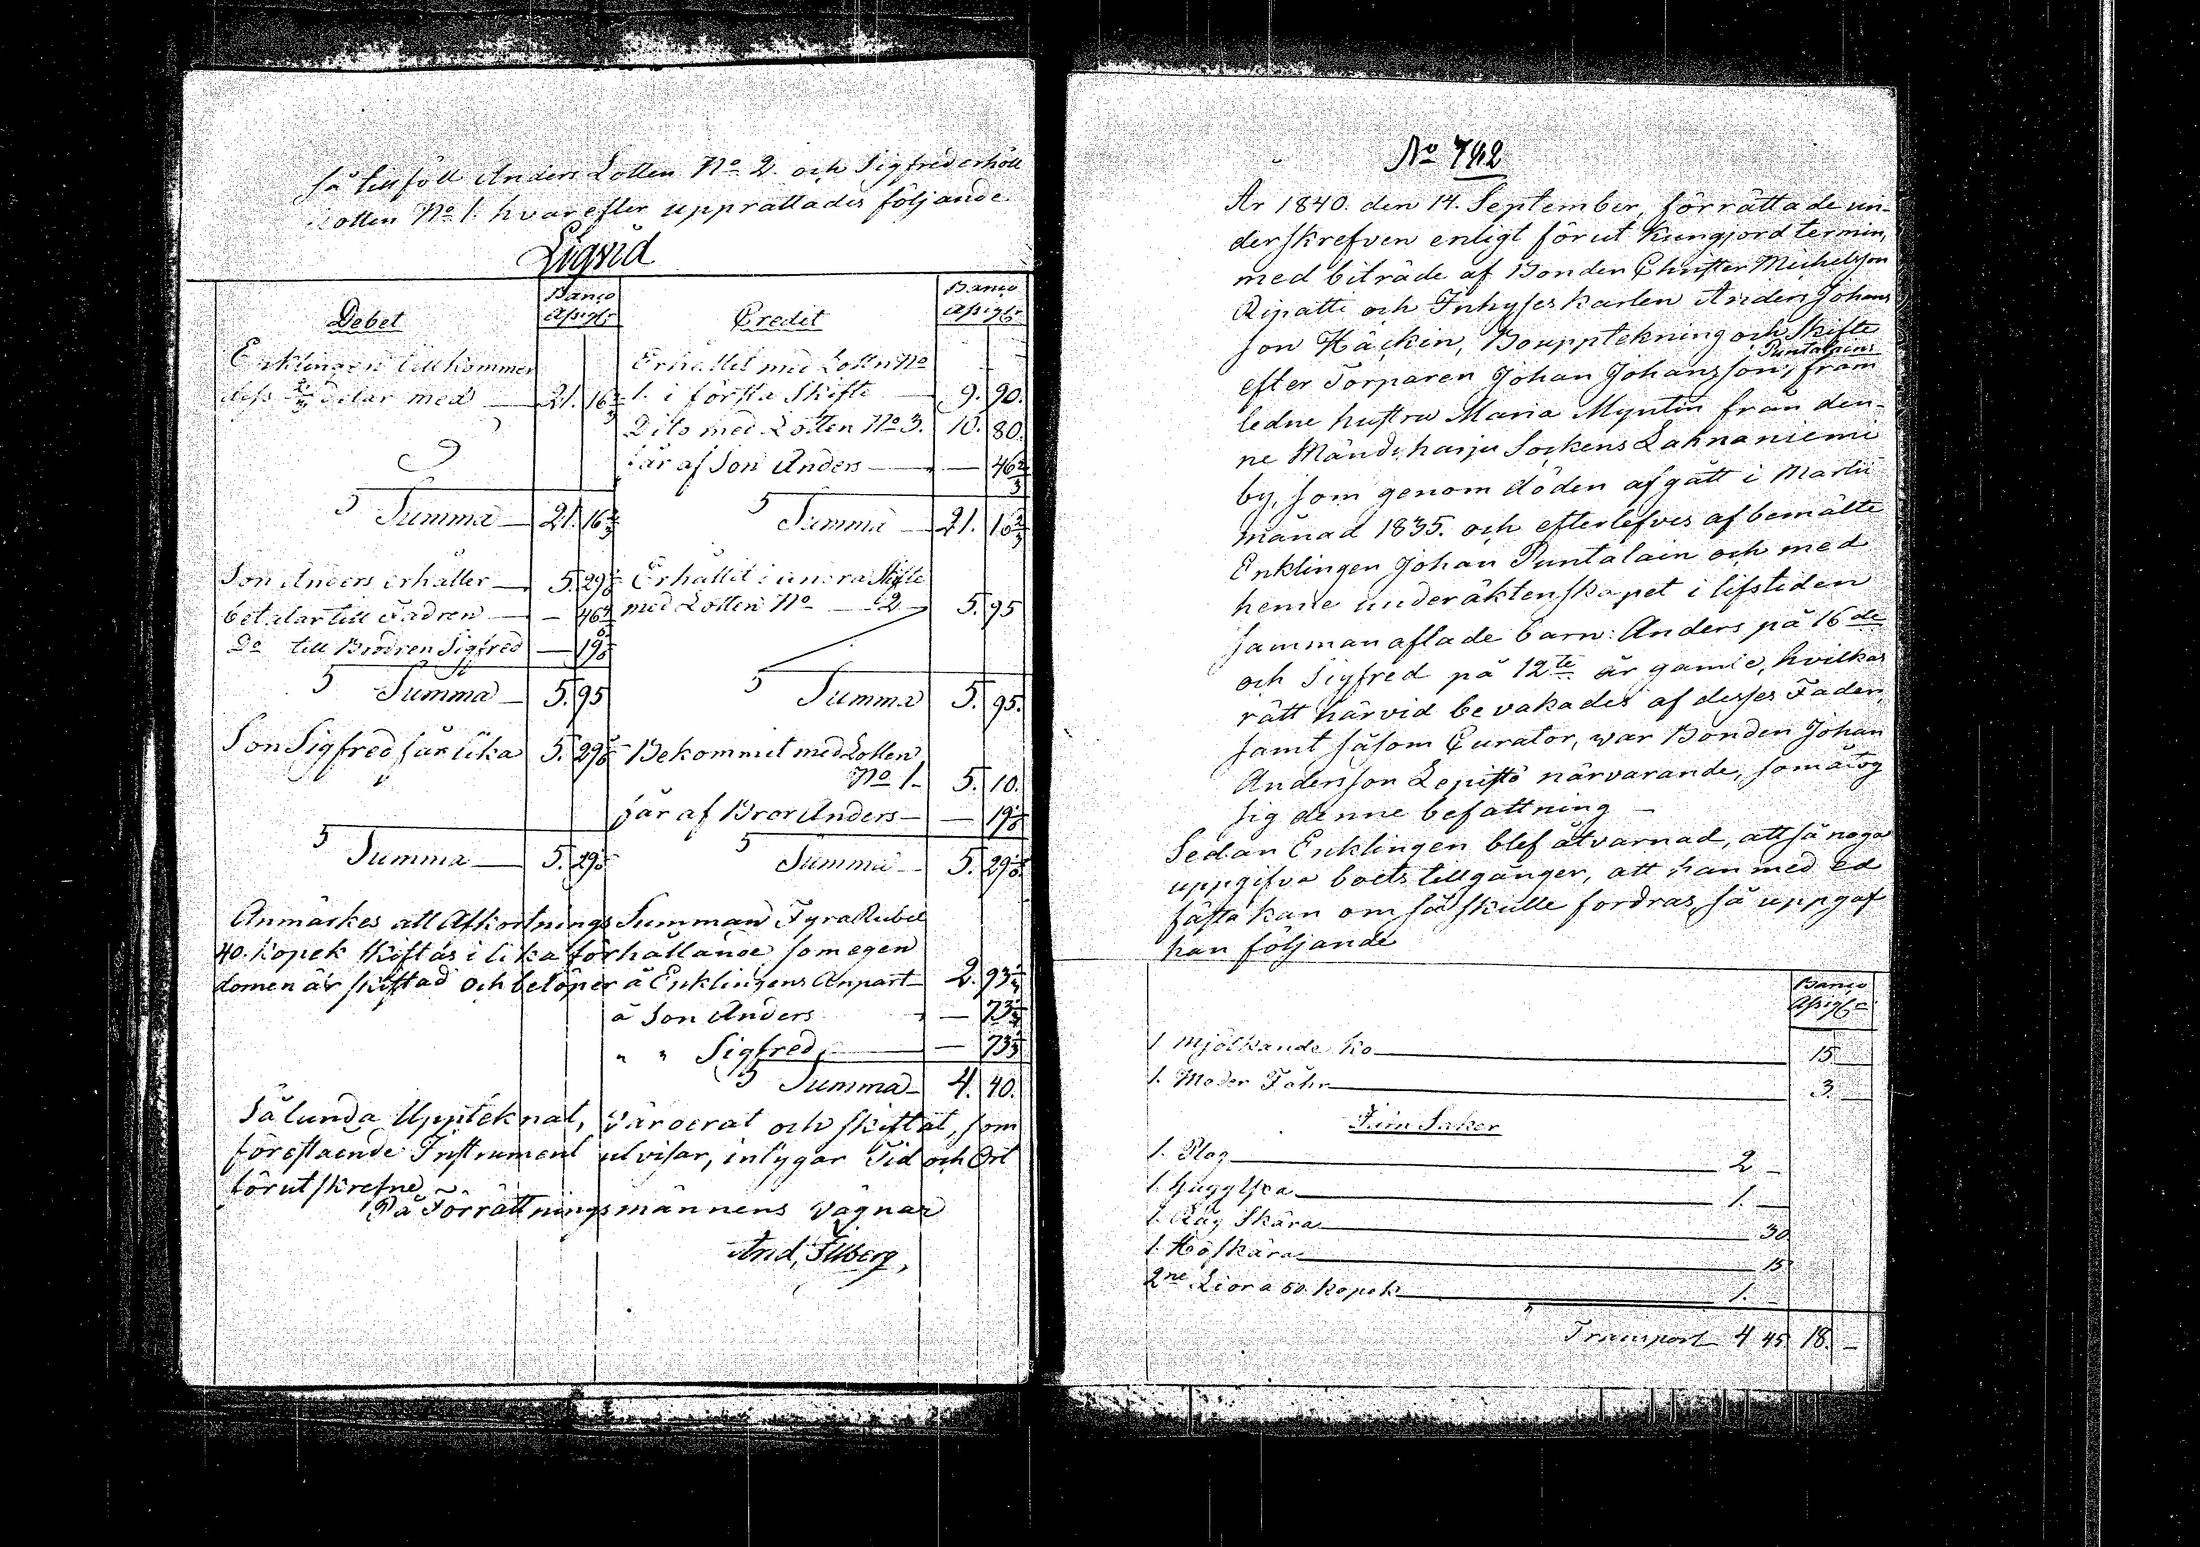 så tillföll Anders Lotten No 2. och Sigfred erhöll
Lotten No 1. hvarefter upprättades följande
Liqvid
Debet
Banco
Assigr
Credit
Banco
Assigr
Enklingen tillkommer
dess 2/3 delar med — 21. 16 2/3
Summa — 21. 16 2/3
Erhållit med Lotten No
1. i första Skifte — 9. 90.
Dito med Lotten No 3. 10. 80.
får af Son Anders — — 46 2/3
Summa — 21. 16 2/3
Son Anders erhåller — 5. 29 1/6
betalar till Fadren — — 46 2/3
Do till Brodren Sigfred — 19 1/6
Summa — 5. 95
Erhållit i andra Skifte
med Lotten No — 2 — 5. 95
Summa 5. 95.
Son Sigfred får lika 5. 29 1/6
Summa — 5. 29 1/6
Bekommit med Lotten
No 1. 5. 10.
får af Bror Anders — — 19 1/6
Summa — 5. 29 1/6
Anmärkes att Afkortnings Summan Fyra Rubel
40. kopek skiftas i lika förhållande som egen
domen är skiftad och belöper å Enklingens Anpart — 2. 93 1/3
å Son Anders — 73 1/3
" " Sigfred, — — 73 1/3
Summa — 4. 40.
Sålunda Upptéknat, värderat och skiftat, som
förestående Instrument utvisar, intygar Tid och Ort
förutskrefne
På Förrättningsmännens vägnar
And, Filberg,
No 742
År 1840. den 14. September, förrättade un-
derskrefven enligt förut kungjord termin,
med biträde af Bonden Christer Michelsson
Ripatti och Inhyses karlen Anders Johans
son Häckin, Bouppteckning och Skifte
Puntalains
efter Torparen Johan Johansson, fram
ledne hustru Maria Myntin från den-
ne Mändyharju Sockens Lahnaniemi
by, som genom döden afgått i Martii
månad 1835. och efterlefves af bemälte
Enklingen Johan Puntalain och med
henne under äktenskapet i lifstiden
samman aflade barn: Anders på 16de
och Sigfred på 12te år gamle, hvilkas
rätt härvid bevakades af desses Fader,
samt såsom Curator, war Bonden Johan
Andersson Lepistö närvarande, som åtog
sig denne befattning —
Sedan Enklingen blef åtvarnad, att så noga
uppgifva boets tillgånger, att han med ed
fästa kan om så skulle fordras, så uppgaf
han följande
Banco
Assigr
1. Mjölkande ko — 15 —
1. Moder Fåhr — 3. —
Jern Saker
1. Plog — 2 —
1. Huggyxa — 1. —
1. Råg Skära — 30
1. Höskära — 15
2ne Liora 50. kopek — 1. —
Transport 4 45 18. —